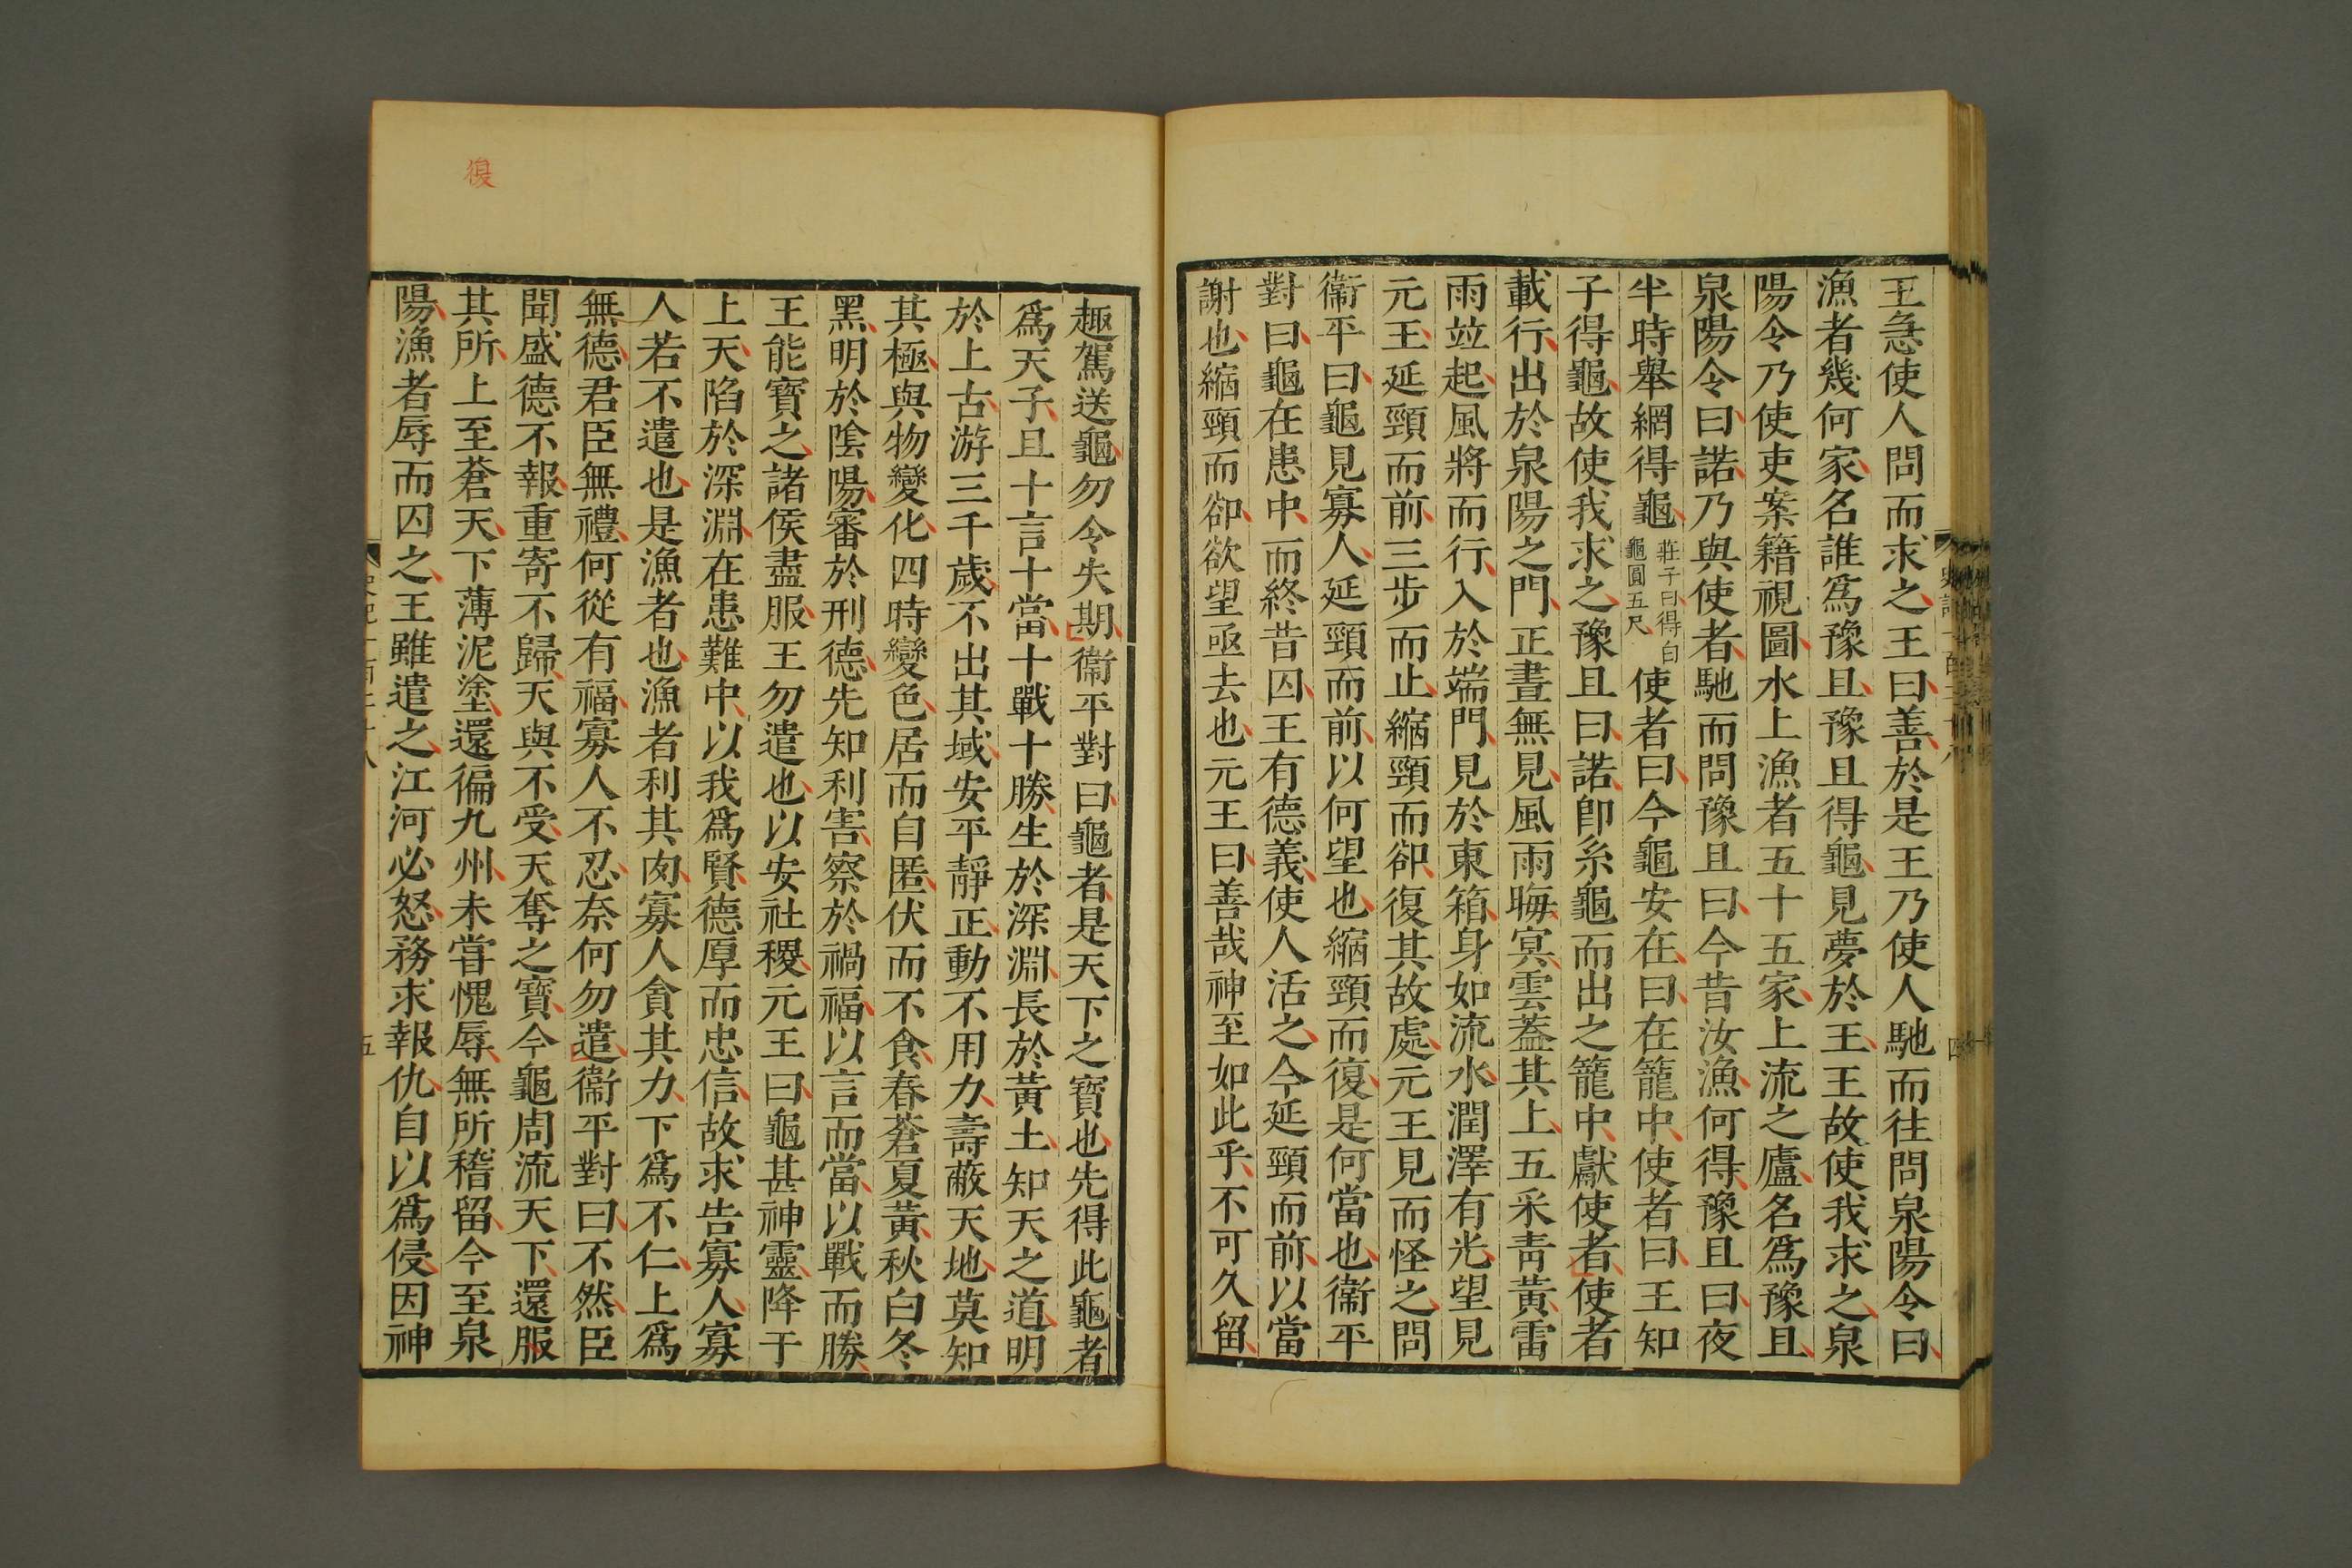 王急使人問而求之王曰善於是王乃使人馳而往問泉陽令曰
漁者幾何家名誰爲豫且豫且得龜見夢於王王故使我求之泉
陽令乃使吏案籍視圖水上漁者五十五家上流之廬名爲豫且
泉陽令曰諾乃與使者馳而問豫且曰今昔汝漁何得豫且曰夜
半時舉網得龜莊子曰得白龜圓五尺使者曰今龜安在曰在籠中使者曰王知
子得龜故使我求之豫且曰諾即系龜而出之籠中獻使者使者
載行出於泉陽之門正晝無見風雨晦冥雲蓋其上五采青黃雷
雨竝起風將而行入於端門見於東箱身如流水潤澤有光望見
元王延頸而前三步而止縮頸而卻復其故處元王見而怪之問
衞平曰龜見寡人延頸而前以何望也縮頸而復是何當也衞平
對曰龜在患中而終昔囚王有德義使人活之今延頸而前以當
謝也縮頸而卻欲望亟去也元王曰善哉神至如此乎不可久留
趣駕送龜勿令失期衞平對曰龜者是天下之寶也先得此龜者
爲天子且十言十當十戰十勝生於深淵長於黃土知天之道明
於上古游三千歲不出其域安平靜正動不用力壽蔽天地莫知
其極與物變化四時變色居而自匿伏而不食春蒼夏黃秋白冬
黑明於陰陽審於刑德先知利害察於禍福以言而當以戰而勝
王能寶之諸侯盡服王勿遣也以安社稷元王曰龜甚神靈降于
上天陷於深淵在患難中以我爲賢德厚而忠信故求告寡人寡
人若不遣也是漁者也漁者利其肉寡人貪其力下爲不仁上爲
無德君臣無禮何從有福寡人不忍奈何勿遣衞平對曰不然臣
聞盛德不報重寄不歸天與不受天奪之寶今龜周流天下還服
其所上至蒼天下薄泥塗還徧九州未甞愧辱無所稽留今至泉
陽漁者辱而囚之王雖遣之江河必怒務求報仇自以爲侵因神
五
復